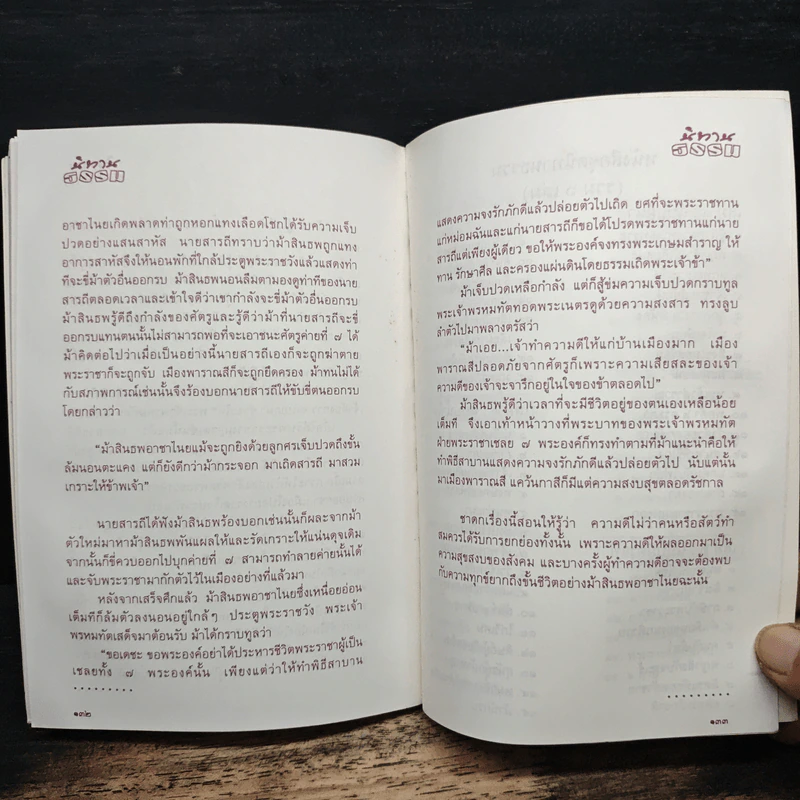 นิทาน
ธรรม
อาชาไนยเกิดพลาดท่าถูกหอกแทงเลือดโชกได้รับความเจ็บ
ปวดอย่างแสนสาหัส นายสารถีทราบว่าม้าสินธพถูกแทง
อาการสาหัสจึงให้นอนพักที่ใกล้ประตูพระราชวังแล้วแสดงท่า
ที่จะขี่ม้าตัวอื่นออกรบ ม้าสินธพนอนลืมตามองดูท่าทีของนาย
สารถีตลอดเวลาและเข้าใจดีว่าเขากำลังจะขี่ม้าตัวอื่นออกรบ
ม้าสินธพรู้ดีถึงกำลังของศัตรูและรู้ดีว่าม้าที่นายสารถีจะขี่
ออกรบแทนตนนั้นไม่สามารถพอที่จะเอาชนะศัตรูค่ายที่ ๗ ได้
ม้าคิดต่อไปว่าเมื่อเป็นอย่างนี้นายสารถีเองก็จะถูกฆ่าตาย
พระราชาก็จะถูกจับ เมืองพาราณสีก็จะถูกยึดครอง ม้าทนไม่ได้
กับสภาพการณ์เช่นนั้นจึงร้องบอกนายสารถีให้ขับขี่ตนออกรบ
โดยกล่าวว่า
“ม้าสินธพอาชาไนยแม้จะถูกยิงด้วยลูกศรเจ็บปวดถึงขั้น
ล้มนอนตะแคง แต่ก็ยังดีกว่าม้ากระจอก มาเถิดสารถี มาสวม
เกราะให้ข้าพเจ้า”
นายสารถีได้ฟังม้าสินธพร้องบอกเช่นนั้นก็ผละจากม้า
ตัวใหม่มาหาม้าสินธพพันแผลให้และรัดเกราะให้แน่นดุจเดิม
จากนั้นก็ขี่ควบออกไปบุกค่ายที่ ๗ สามารถทำลายค่ายนั้นได้
และจับพระราชามากักตัวไว้ในเมืองอย่างที่แล้วมา
หลังจากเสร็จศึกแล้ว ม้าสินธพอาชาไนยซึ่งเหนื่อยอ่อน
เต็มทีก็ล้มตัวลงนอนอยู่ใกล้ๆ ประตูพระราชวัง พระเจ้า
พรหมทัตเสด็จมาต้อนรับ ม้าได้กราบทูลว่า
“ขอเดชะ ขอพระองค์อย่าได้ประหารชีวิตพระราชาผู้เป็น
เชลยทั้ง ๗ พระองค์นั้น เพียงแต่ว่าให้ทำพิธีสาบาน
.........
๑๓๒
นิทาน
ธรรม
แสดงความจงรักภักดีแล้วปล่อยตัวไปเถิด ยศที่จะพระราชทาน
แก่หม่อมฉันและแก่นายสารถีก็ขอได้โปรดพระราชทานแก่นาย
สารถีแต่เพียงผู้เดียว ขอให้พระองค์จงทรงพระเกษมสำราญ ให้
ทาน รักษาศีล และครองแผ่นดินโดยธรรมเถิดพระเจ้าข้า”
ม้าเจ็บปวดเหลือกำลัง แต่ก็สู้ข่มความเจ็บปวดกราบทูล
พระเจ้าพรหมทัตทอดพระเนตรดูด้วยความสงสาร ทรงลูบ
ลำตัวไปมาพลางตรัสว่า
“ม้าเอย...เจ้าทำความดีให้แก่บ้านเมืองมาก เมือง
พาราณสีปลอดภัยจากศัตรูก็เพราะความเสียสละของเจ้า
ความดีของเจ้าจะจารึกอยู่ในใจของข้าตลอดไป”
ม้าสินธพรู้ดีว่าเวลาที่จะมีชีวิตอยู่ของตนเองเหลือน้อย
เต็มที จึงเอาเท้าหน้าวางที่พระบาทของพระเจ้าพรหมทัต
ฝ่ายพระราชาเชลย ๗ พระองค์ก็ทรงทำตามที่ม้าแนะนำคือให้
ทำพิธีสาบานแสดงความจงรักภักดีแล้วปล่อยตัวไป นับแต่นั้น
มาเมืองพาราณสี แคว้นกาสีก็มีแต่ความสงบสุขตลอดรัชกาล
ชาดกเรื่องนี้สอนให้รู้ว่า ความดีไม่ว่าคนหรือสัตว์ทำ
สมควรได้รับการยกย่องทั้งนั้น เพราะความดีให้ผลออกมาเป็น
ความสุขสงบของสังคม และบางครั้งผู้ทำความดีอาจจะต้องพบ
กับความทุกข์ยากถึงขั้นชีวิตอย่างม้าสินธพอาชาไนยฉะนั้น
.........
๑๓๓